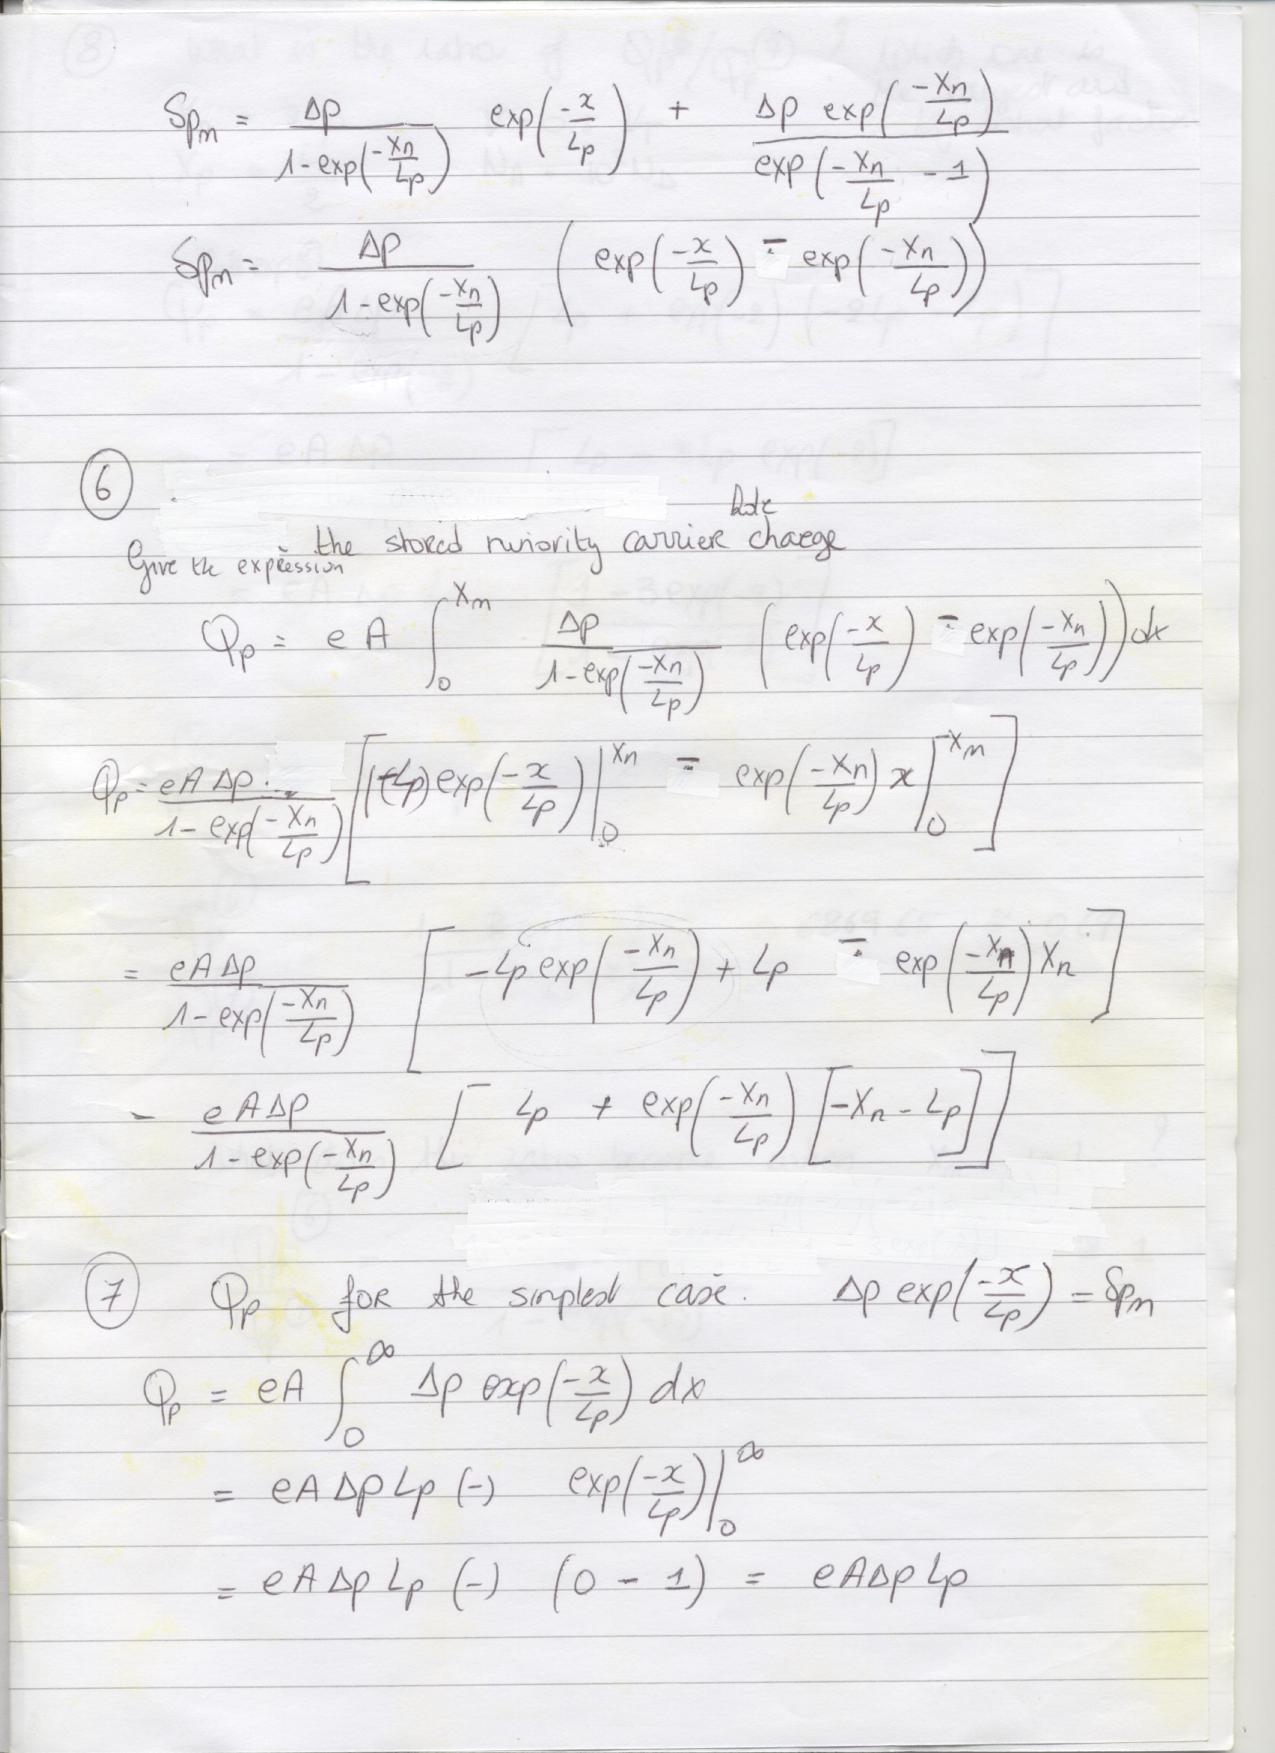 δpn = Δp / (1-exp(-Xn/Lp)) exp(-x/Lp) + Δp exp(-Xn/Lp) / exp(-Xn/Lp - 1)
δpn = Δp / (1-exp(-Xn/Lp)) (exp(-x/Lp) - exp(-Xn/Lp))
6
Give the expression the stored minority carrier hole charge
Qp = eA ∫_0^Xn Δp / (1-exp(-Xn/Lp)) (exp(-x/Lp) - exp(-Xn/Lp)) dx
Qp = eAΔp / (1-exp(-Xn/Lp)) [(-Lp) exp(-x/Lp) |_0^Xn - exp(-Xn/Lp) x |_0^Xn]
= eAΔp / (1-exp(-Xn/Lp)) [-Lp exp(-Xn/Lp) + Lp - exp(-Xn/Lp) Xn]
- eAΔp / (1-exp(-Xn/Lp)) [Lp + exp(-Xn/Lp) [-Xn - Lp]]
7 Qp for the simplest case. Δp exp(-x/Lp) = δpn
Qp = eA ∫_0^∞ Δp exp(-x/Lp) dx
= eA Δp Lp (-) exp(-x/Lp) |_0^∞
= eA Δp Lp (-) (0 - 1) = eAΔp Lp